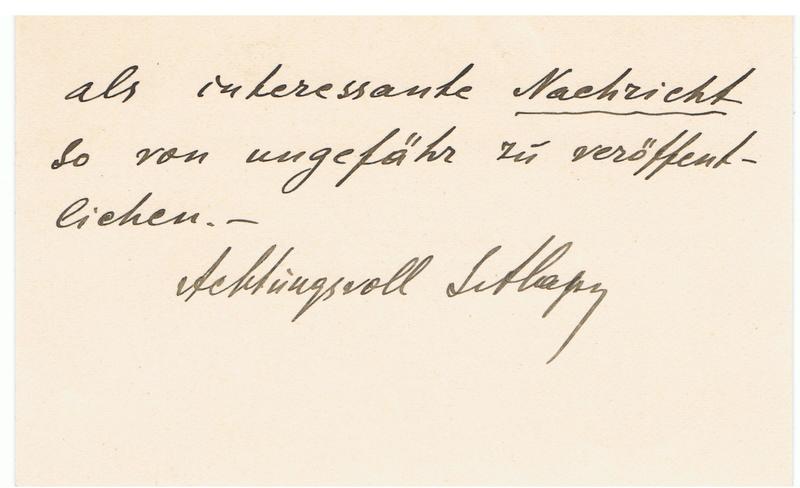 als interessante Nachricht
so von ungefähr zu veröffent-
lichen.—
Achtungsvoll